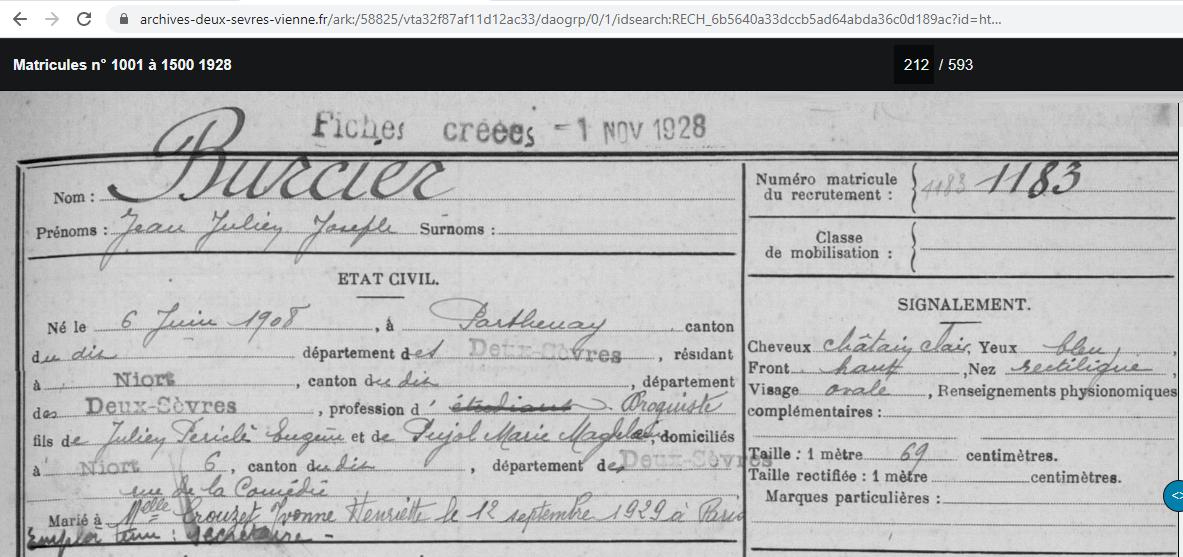 archives-deux-sevres-vienne.fr/ark:/58825/vta32f87af11d12ac33/daogrp/0/1/idsearch:RECH_6b5640a33dccb5ad64abda36c0d189ac?id=ht...
Matricules n° 1001 à 1500 1928
212 / 593
Fiches créées - 1 NOV 1928
Nom : Burcier
Prénoms : Jean Julien Joseph Surnoms :
ETAT CIVIL.
Né le 6 Juin 1908, à Parthenay canton
du dis département des Deux-Sèvres, résidant
à Niort, canton du dis, département
des Deux-Sèvres, profession d' étudiant Droguiste
fils de Julien Périclé Eugène et de Pujol Marie, domiciliés
à Niort 6, canton du dis, département des Deux-Sèvres
rue de la Comédie
Marié à Melle Crouzet Yvonne Henriette le 12 septembre 1929 à Paris
Emploi tenu : Secrétaire -
Numéro matricule
du recrutement : 1183 1183
Classe
de mobilisation :
SIGNALEMENT.
Cheveux châtain clair, Yeux bleu,
Front haut, Nez rectiligne,
Visage ovale, Renseignements physionomiques
complémentaires :
Taille : 1 mètre 69 centimètres.
Taille rectifiée : 1 mètre centimètres.
Marques particulières :
<>